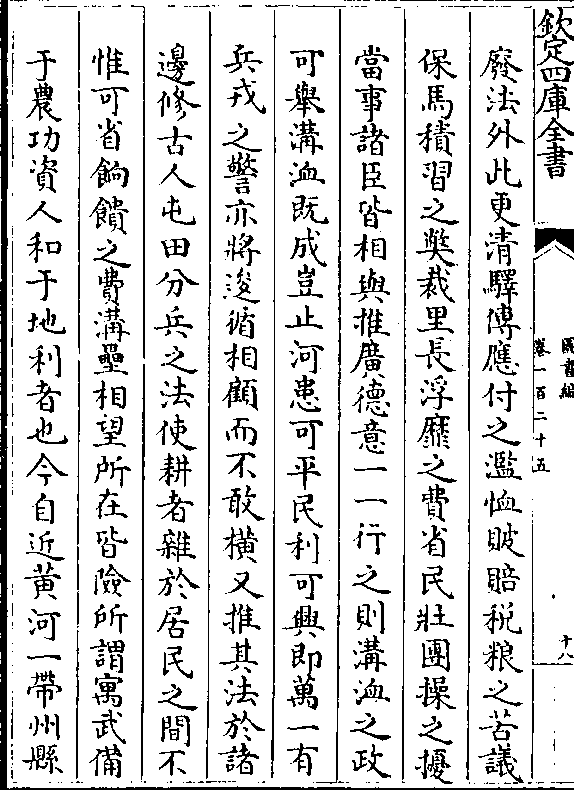 欽定四庫全書
圖書編
卷一百二十五
十八
廢法外此更清驛傳應付之濫恤賠稅粮之苦議
保馬積習之獘裁里長浮靡之費省民壯團操之擾
當事諸臣皆相與推廣德意一一行之則溝洫之政
可舉溝洫既成豈止河患可平民利可興即萬一有
兵戎之警亦將逡循相顧而不敢橫又推其法於諸
邊修古人屯田分兵之法使耕者雜於居民之間不
惟可省餉饋之費溝壘相望所在皆險所謂寓武備
于農功資人和于地利者也今自近黄河一帶州縣